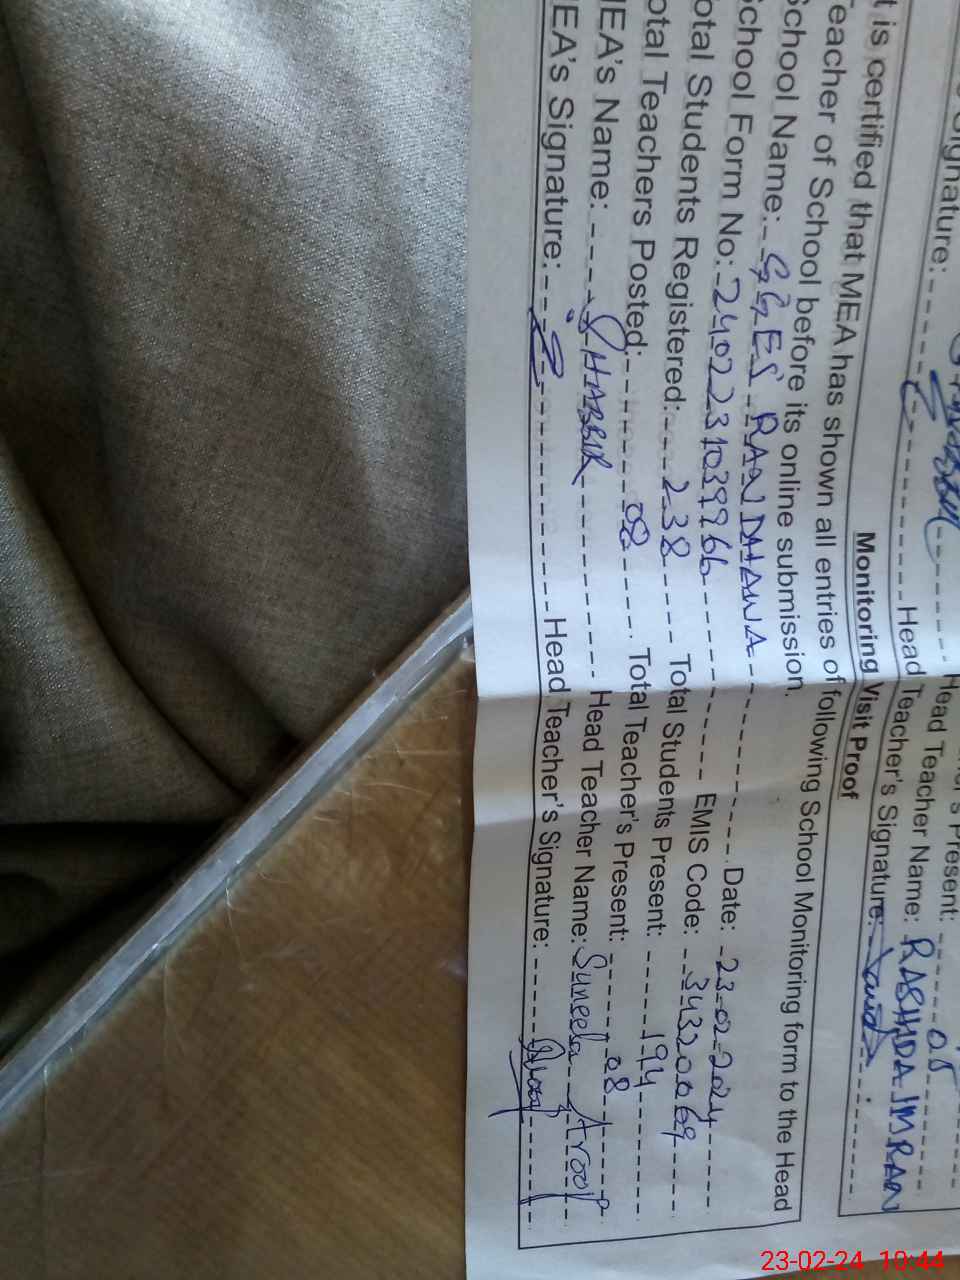 Signature: Head Teacher's Signature:
Present: 05
Head Teacher Name: RASHIDA IMRAN
Monitoring Visit Proof
t is certified that MEA has shown all entries of following School Monitoring form to the Head
Teacher of School before its online submission.
School Name: GGES RANDHAWA Date: 23-02-2024
School Form No: 24022310399 EMIS Code: 34320069
Total Students Registered: 238 Total Students Present: 194
otal Teachers Posted: 08 Total Teacher's Present: 08
MEA's Name: SHABBIR Head Teacher Name: Suneela Arooj
MEA's Signature: Head Teacher's Signature: Arooj
23-02-24 10:44